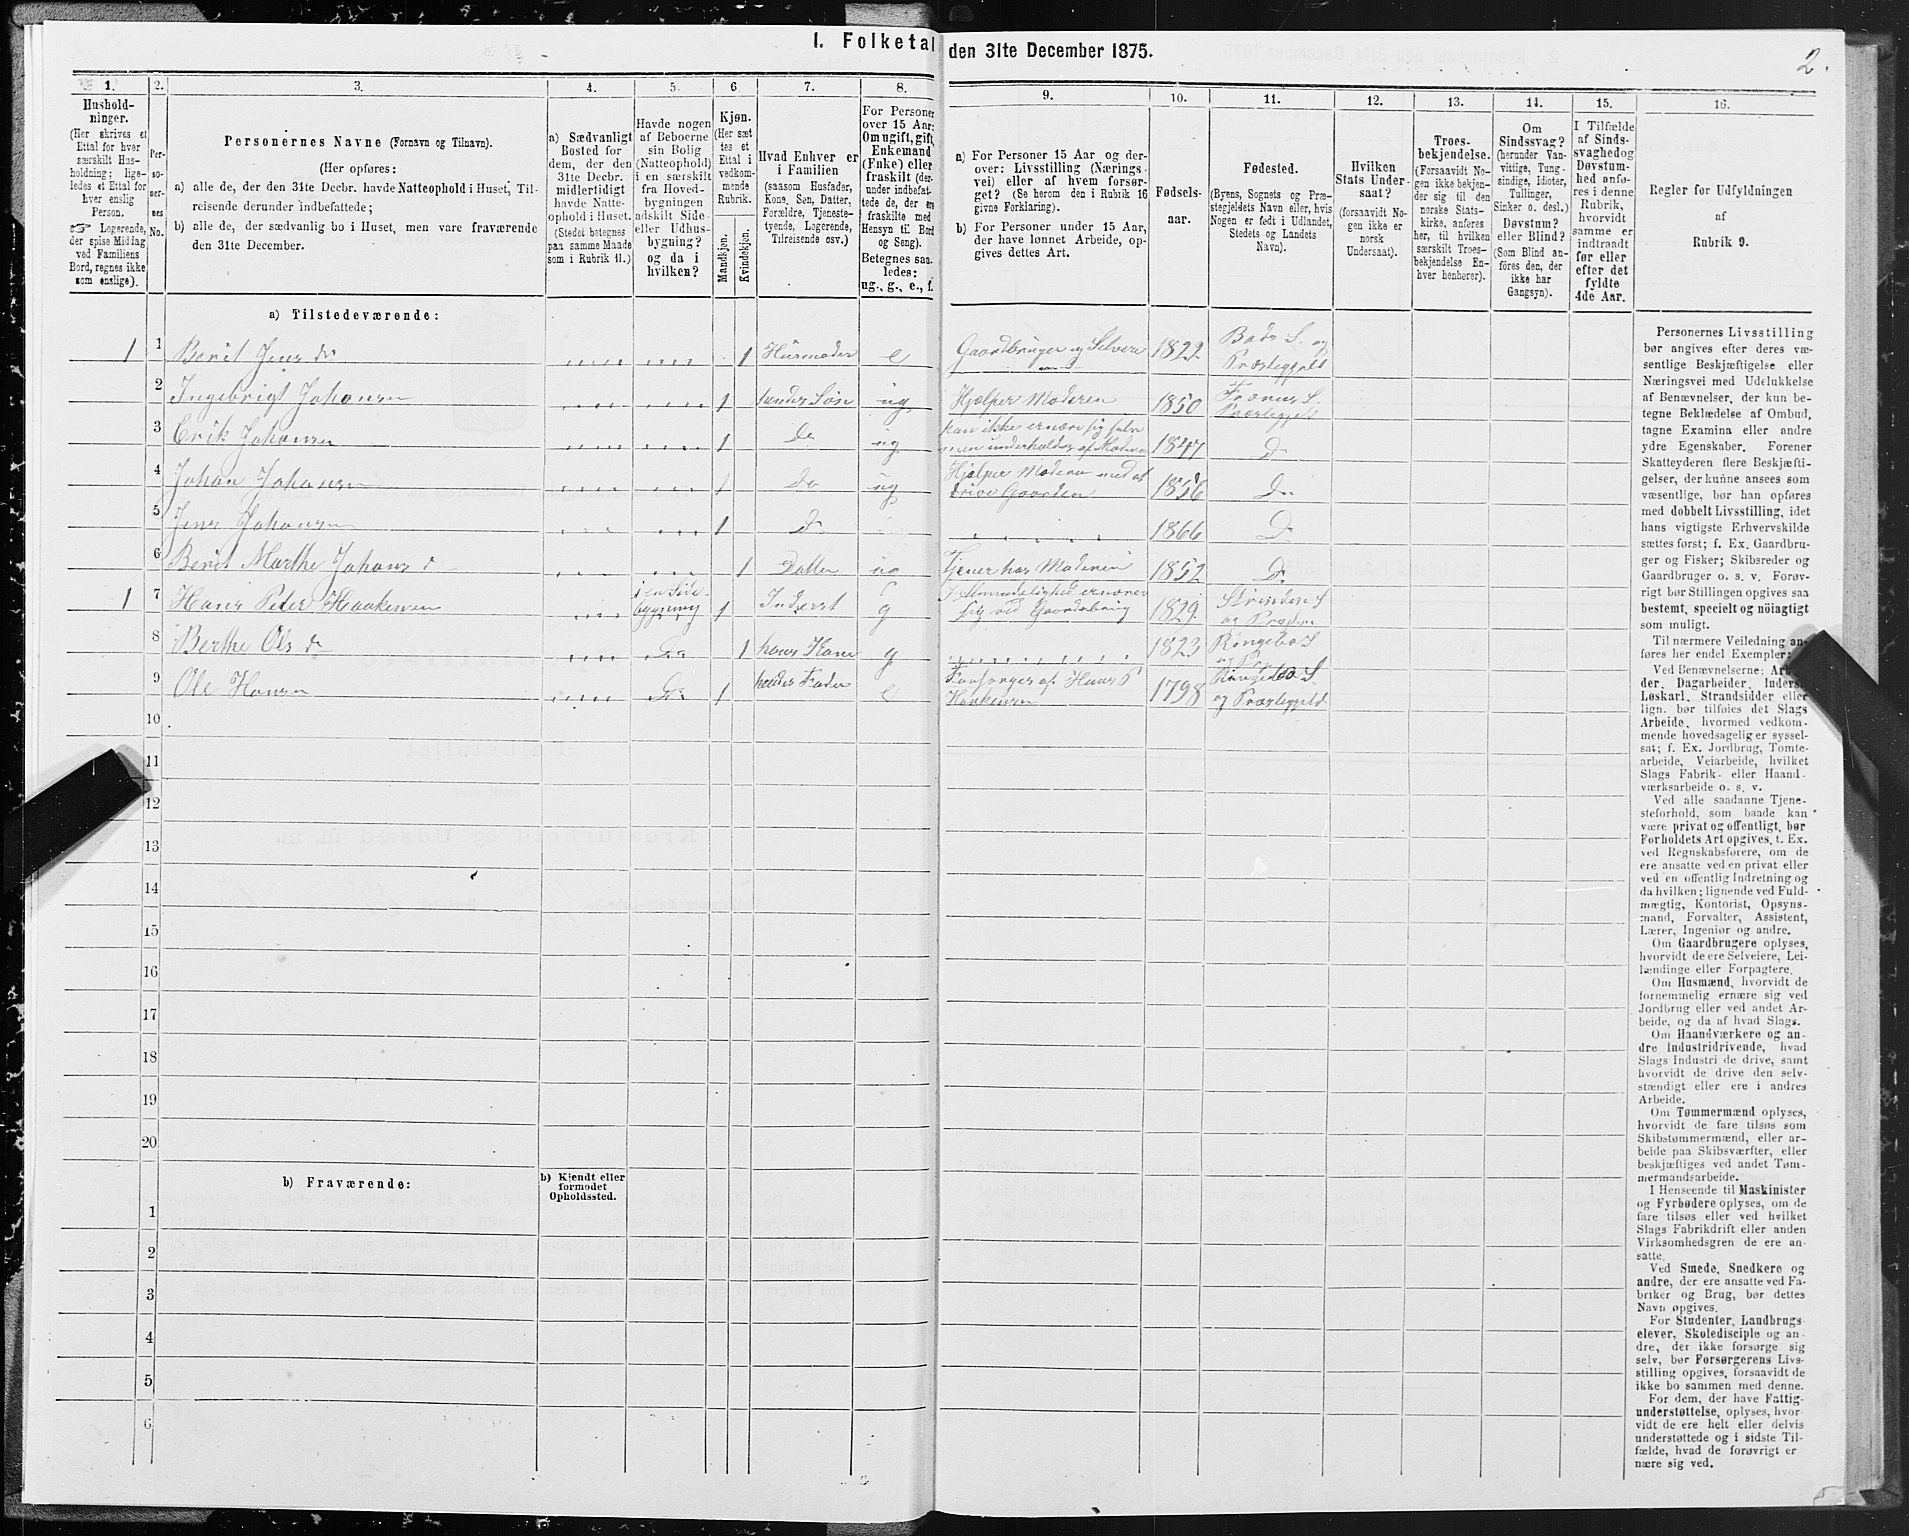 I. Folketal den 31te December 1875.
2.
1.
Hushold-
ninger.
(Her skrives et
Ettal for hver
særskilt Hus-
holdning; lige-
ledes et Ettal for
hver enslig
Person.
☞ Logerende,
der spise Middag
ved Familiens
Bord, regnes ikke
som enslige).
2.
Per-
so-
ner-
nes
No.
3.
Personernes Navne (Fornavn og Tilnavn).
(Her opføres:
a) alle de, der den 31te Decbr. havde Natteophold i Huset, Til-
reisende derunder indbefattede;
b) alle de, der sædvanlig bo i Huset, men vare fraværende
den 31te December.
4.
a) Sædvanligt
Bosted for
dem, der den
31te Decbr.
midlertidigt
havde Natte-
ophold i Huset.
(Stedet betegnes
paa samme Maade
som i Rubrik 11.)
5.
Havde nogen
af Beboerne
sin Bolig
(Natteophold)
i en særskilt
fra Hoved-
bygningen
adskilt Side-
eller Udhus-
bygning?
og da i
hvilken?
6.
Kjøn.
(Her sæt
tes et
Ettal i
vedkom-
mende
Rubrik.
Mandkjøn.
Kvindekjøn.
7.
Hvad Enhver er
i Familien
(saasom Husfader,
Kone, Søn, Datter,
Forældre, Tjeneste-
tyende, Logerende,
Tilreisende osv.)
8.
For Personer
over 15 Aar:
Om ugift, gift,
Enkemand
(Enke) eller
fraskilt (der-
under indbefat-
tede de, der ere
fraskilte med
Hensyn til Bord
og Seng).
Betegnes saa-
ledes:
ug., g., e., f.
9.
a) For Personer 15 Aar og der-
over: Livsstilling (Nærings-
vei) eller af hvem forsør-
get? (Se herom den i Rubrik 16
givne Forklaring).
b) For Personer under 15 Aar,
der have lønnet Arbeide, op-
gives dettes Art.
10.
Fødsels-
aar.
11.
Fødested.
(Byens, Sognets og Præ-
stegjeldets Navn eller, hvis
Nogen er født i Udlandet,
Stedets og Landets
Navn).
12.
Hvilken
Stats Under-
saat?
(forsaavidt No-
gen ikke er
norsk
Undersaat).
13.
Troes-
bekjendelse.
(Forsaavidt No-
gen ikke bekjen-
der sig til den
norske Stats-
kirke, anføres
her, til hvilken
særskilt Troes-
bekjendelse En-
hver henhører).
14.
Om
Sindssvag?
(herunder Van-
vittige, Tung-
sindige, Idioter,
Tullinger,
Sinker o. desl.)
Døvstum?
eller Blind?
(Som Blind an-
føres den, der
ikke har
Gangsyn).
15.
I Tilfælde
af Sinds-
svaghed og
Døvstum-
hed anfø-
res i denne
Rubrik,
hvorvidt
samme er
indtraadt
før eller
efter det
fyldte
4de Aar.
16.
Regler for Udfyldningen
af
Rubrik 9.
a) Tilstedeværende:
1 1 Berit Jens dr 1 Husmoder e Gaardbruger og Selveier 1822 Bods S. og
Præstegjeld
2 Ingebrigt Johansen 1 hendes Søn ug Hjælper Moderen 1850 S.
Præstegjeld
3 Erik Johansen 1 Do ug kan ikke ernære sig selv
men underholdes af Moderen 1847 Do
4 Johan Johansen 1 Do ug Hjælper Moderen med at
drive Gaarden 1856 Do
5 Jens Johansen 1 Do 1866 Do
6 Berit Marthe Johans d 1 Datter ug Tjener hos Moderen 1852 Do
1 7 Hans Peter Haakensen i en Side-
bygning 1 Inderst g I Almindelighed ernærer
sig ved Gaardsbrug 1829. Strinden S
og Præstegj
8 Berthe Ols dr Do 1 hans Kone g 1823 Ringebo S
og
9 Ole Hansen Do 1 hendes Fader e Forsørges af Hans P
Haakensen 1798 Ringebo S.
og Præstegjeld.
10
11
12
13
14
15
16
17
18
19
20
b) Fraværende:
b) Kjendt eller
formodet
Opholdssted.
1
2
3
4
5
6
Personernes Livsstilling
bør angives efter deres væ-
sentlige Beskjæftigelse eller
Næringsvei med Udelukkelse
af Benævnelser, der kun be-
tegne Beklædelse af Ombud,
tagne Examina eller andre
ydre Egenskaber. Forener
Skatteyderen flere Beskjæfti-
gelser, der kunne ansees som
væsentlige, bør han opføres
med dobbelt Livsstilling, idet
hans vigtigste Erhvervskilde
sættes først; f. Ex. Gaardbru-
ger og Fisker; Skibsreder og
Gaardbruger o. s. v. Forøv-
rigt bør Stillingen opgives saa
bestemt, specielt og nöiagtigt
som muligt.
Til nærmere Veiledning an-
føres her endel Exempler:
Ved Benævnelserne: Arbei-
der, Dagarbeider, Inderst,
Løskarl, Strandsidder eller
lign. bør tilføies det Slags
Arbeide, hvormed vedkom-
mende hovedsagelig er syssel-
sat; f. Ex. Jordbrug, Tomte-
arbeide, Veiarbeide, hvilket
Slags Fabrik- eller Haand-
værksarbeide o. s. v.
Ved alle saadanne Tjene-
steforhold, som baade kan
være privat og offentligt, bør
Forholdets Art opgives, t. Ex.
ved Regnskabsførere, om de
ere ansatte ved en privat eller
ved en offentlig Indretning og
da hvilken; lignende ved Fuld-
mægtig, Kontorist, Opsyns-
mand, Forvalter, Assistent,
Lærer, Ingeniør og andre.
Om Gaardbrugere oplyses,
hvorvidt de ere Selveiere, Lei-
lændinge eller Forpagtere.
Om Husmænd, hvorvidt de
fornemmelig ernære sig ved
Jordbrug eller ved andet Ar-
beide, og da af hvad Slags.
Om Haandværkere og an-
dre Industridrivende, hvad
Slags Industri de drive, samt
hvorvidt de drive den selv-
stændigt eller ere i andres
Arbeide.
Om Tømmermænd oplyses,
hvorvidt de fare tilsøs som
Skibstømmermænd, eller ar-
beide paa Skibsværfter, eller
beskjæftiges ved andet Tøm-
mermandsarbeide.
I Henseende til Maskinister
og Fyrbødere oplyses, om de
fare tilsøs eller ved hvilket
Slags Fabrikdrift eller anden
Virksomhedsgren de ere an-
satte.
Ved Smede, Snedkere og
andre, der ere ansatte ved Fa-
briker og Brug, bør dettes
Navn opgives.
For Studenter, Landbrugs-
elever, Skoledisciple og an-
dre, der ikke forsørge sig
selv, bør Forsørgerens Livs-
stilling opgives, forsaavidt de
ikke bo sammen med denne.
For dem, der have Fattig-
understøttelse, oplyses, hvor-
vidt de ere helt eller delvis
understøttede og i sidste Til-
fælde, hvad de forøvrigt er
nære sig ved.